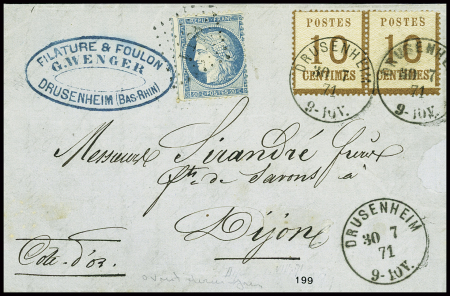 FILATURE & FOULON
G. WENGER
DRUSENHEIM (BAS-RHIN)
REPUB. FRANC.
20 C. POSTES 20 C.
POSTES
10
CENTIMES
POSTES
10
CENTIMES
DRUSENHEIM
30 7
71
9-10V.
Messieurs Sirandré frères
fts de Savons à
Dijon
Côte-d'or
DRUSENHEIM
30 7
71
9-10V.
199